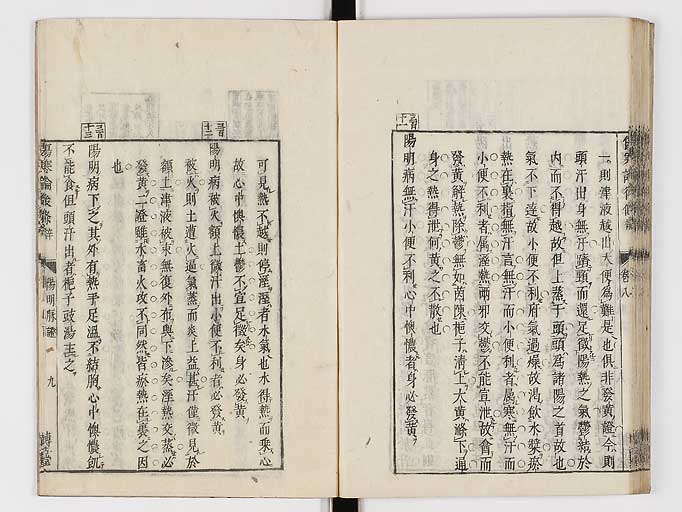 一則津液越出大便為難是也俱非發黃證今則
頭汗出身無汗躋頸而還足徵陽熱之氣鬱結於
內而不得越故但上蒸于頭頭為諸陽之首故也
氣不下達故小便不利府氣過燥故渴飲水漿瘀
熱在裏指無汗言無汗而小便利者屬寒無汗而
小便不利者屬溼熱兩邪交鬱不能宣泄故盦而
發黃解熱除鬱無如茵陳梔子清上大黃滌下通
身之熱得泄何黃之不散也
二百十一
陽明病無汗小便不利心中懊憹者身必發黃
卷八
可見熱不越則停溼溼者水氣也水得熱而乘心
故心中懊憹土鬱不宣足徵矣身必發黃
二百十二
陽明病被火額上微汗出小便不利者必發黃
被火則土遭火逼氣蒸而炎上益甚汗僅微見於
額上津液被束無復外布與下滲矣溼熱交蒸必
發黃二證雖水畜火攻不同然皆瘀熱在裏之因
也
二百十三
陽明病下之其外有熱手足溫不結胸心中懊憹飢
不能食但頭汗出者梔子豉湯主之
傷寒論後條辨
陽明脈證
九